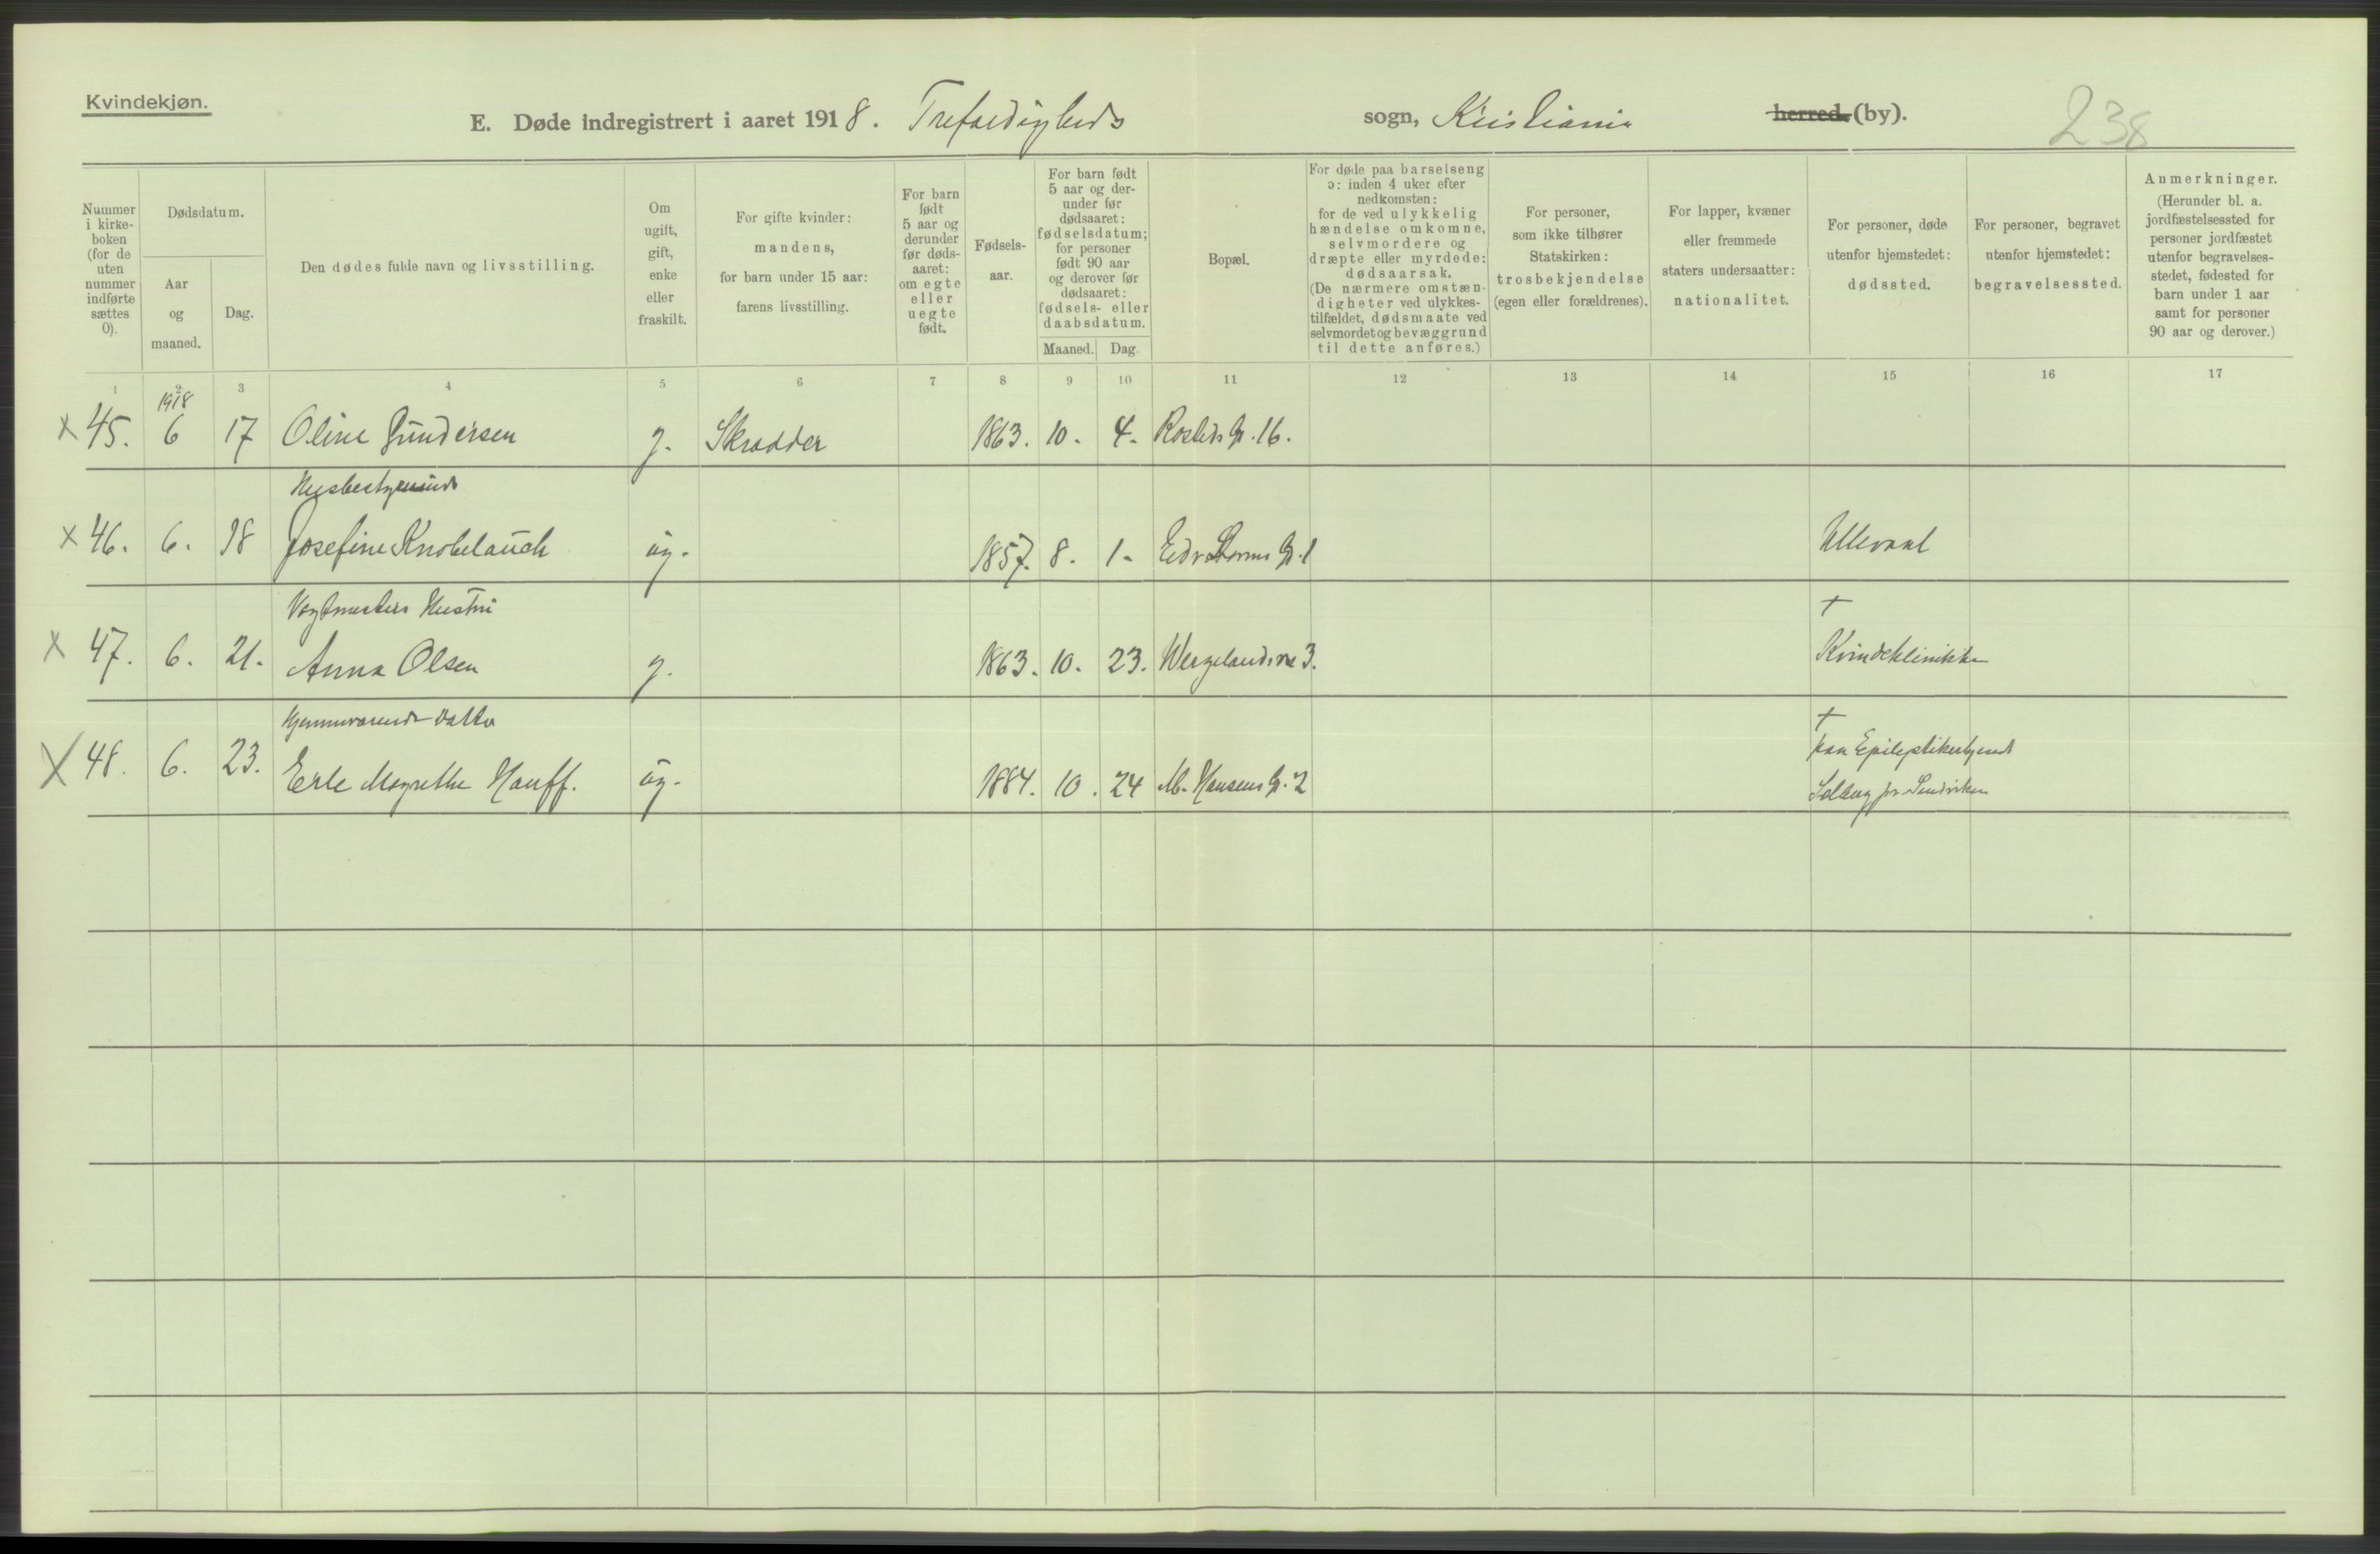 Kvindekjøn.
E. Døde indregistrert i aaret 1918. Trefoldigheds sogn, Kristiania herred. (by).
238
Nummer i kirke-boken (for de uten nummer indførte sættes 0).
Dødsdatum.
Aar og maaned.
Dag.
Den dødes fulde navn og livsstilling.
Om ugift, gift, enke eller fraskilt.
For gifte kvinder: mandens, for barn under 15 aar: farens livsstilling.
For barn født 5 aar og derunder før døds-aaret: om egte eller uegte født.
Fødsels-aar.
For barn født 5 aar og der-under før dødsaaret: fødselsdatum; for personer født 90 aar og derover før dødsaaret: fødsels- eller daabsdatum.
Maaned.
Dag.
Bopæl.
For døde paa barselseng ɔ: inden 4 uker efter nedkomsten: for de ved ulykkelig hændelse omkomne, selvmordere og dræpte eller myrdede: dødsaarsak. (De nærmere omstæn-digheter ved ulykkes-tilfældet, dødsmaate ved selvmordet og bevæggrund til dette anføres.)
For personer, som ikke tilhører Statskirken: trosbekjendelse (egen eller forældrenes).
For lapper, kvæner eller fremmede staters undersaatter: nationalitet.
For personer, døde utenfor hjemstedet: dødssted.
For personer, begravet utenfor hjemstedet: begravelsessted.
Anmerkninger. (Herunder bl. a. jordfæstelsessted for personer jordfæstet utenfor begravelses-stedet, fødested for barn under 1 aar samt for personer 90 aar og derover.)
1 2 3 4 5 6 7 8 9 10 11 12 13 14 15 16 17
1918
x 45. 6 17 Oline Gundersen g. Skrædder 1863. 10. 4. Rosteds G. 16.
Husbestyrerinde
x 46. 6. 18 Josefine Knobelauch ug. 1857. 8. 1. Edv Storms G. 1 Ullevaal
Vagtmesters Hustru
x 47. 6. 21. Anna Olsen g. 1863. 10. 23. Wergelandsve 3. † Kvindeklinikken
Hjemmeværende Datter
x 48. 6. 23. Erle Magrethe Hauff. ug. 1884. 10. 24 M. Hansens G. 2 † paa
Solberg pr. Sandviken